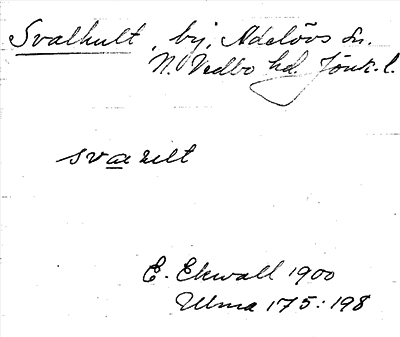 Svalhult, by, Adelövs sn.
N. Vedbo hd. Jönk. l.
E. Ekwall 1900
Ulma 175:198